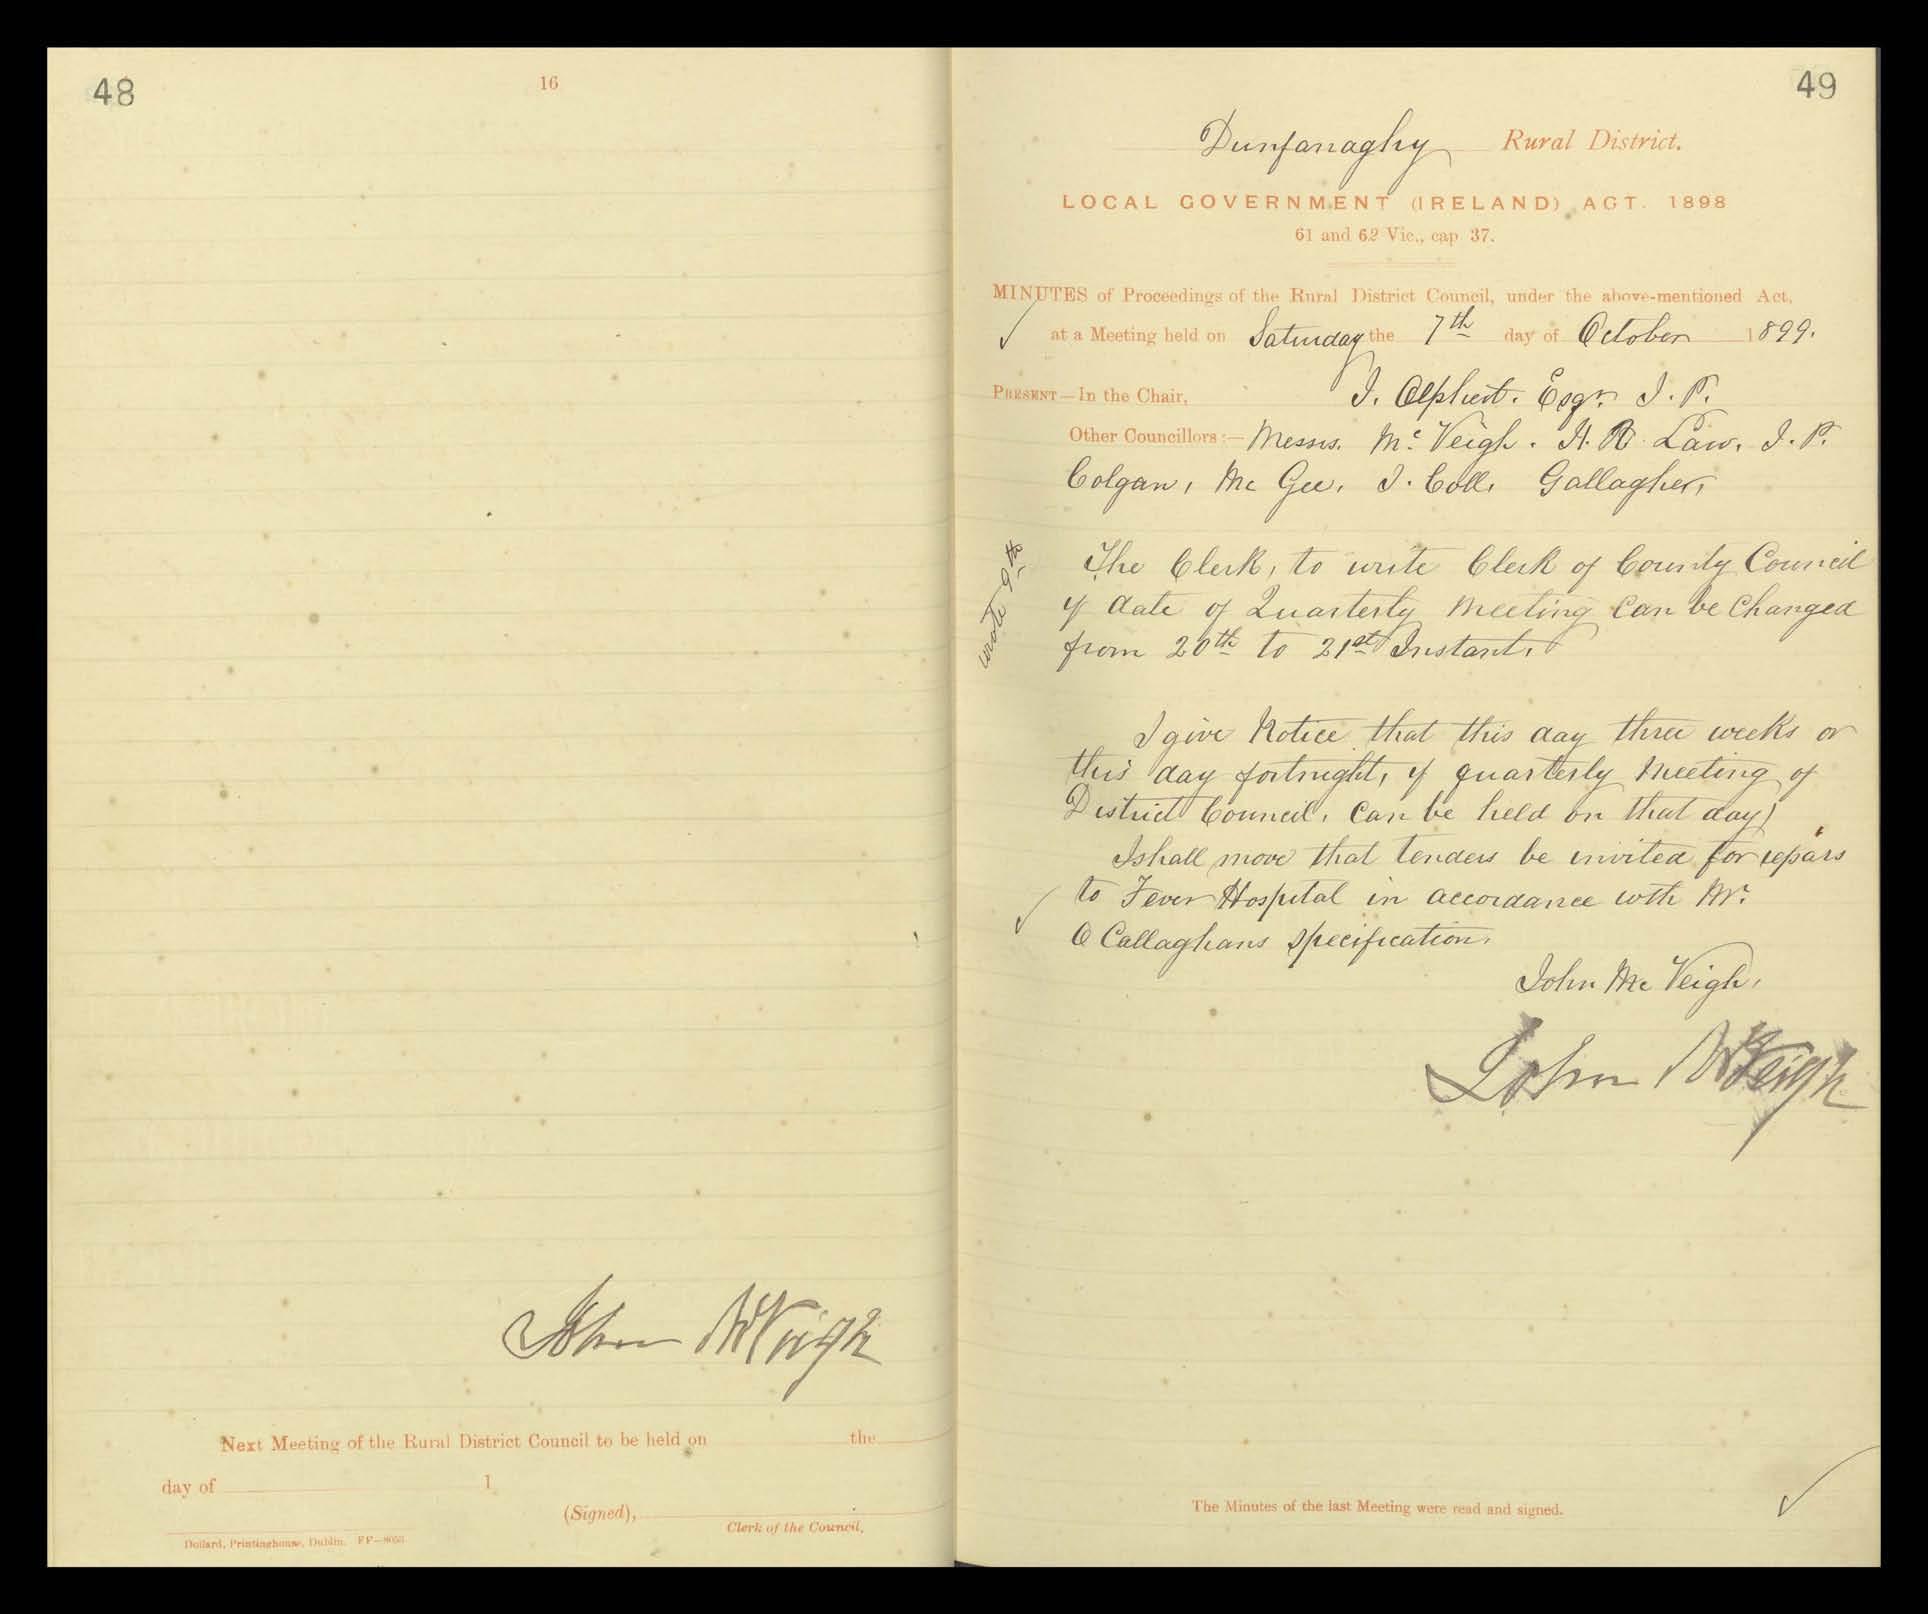 48
16
John McVeigh
Next Meeting of the Rural District Council to be held on the
day of 1
(Signed),
Clerk of the Council.
Dollard, Printinghouse, Dublin. FF—8053
49
Dunfanaghy Rural District.
LOCAL GOVERNMENT (IRELAND) ACT. 1898
61 and 62 Vic., cap 37.
MINUTES of Proceedings of the Rural District Council, under the above-mentioned Act,
at a Meeting held on Saturday the 7th day of October 1899.
PRESENT—In the Chair, J. Olphert. Esqr. J. P.
Other Councillors:— Messrs. Mc Veigh. H. A. Law, J. P.
Colgan, Mc Gee, J. Coll, Gallagher,
wrote 9th
The Clerk, to write Clerk of County Council
if date of Quarterly Meeting can be changed
from 20th to 21st Instant.
I give Notice that this day three weeks or
this day fortnight, if quarterly Meeting of
District Council, can be held on that day)
I shall move that tenders be invited for repairs
to Fever Hospital in accordance with Mr.
O Callaghans specification.
John Mc Veigh.
John McVeigh
The Minutes of the last Meeting were read and signed.